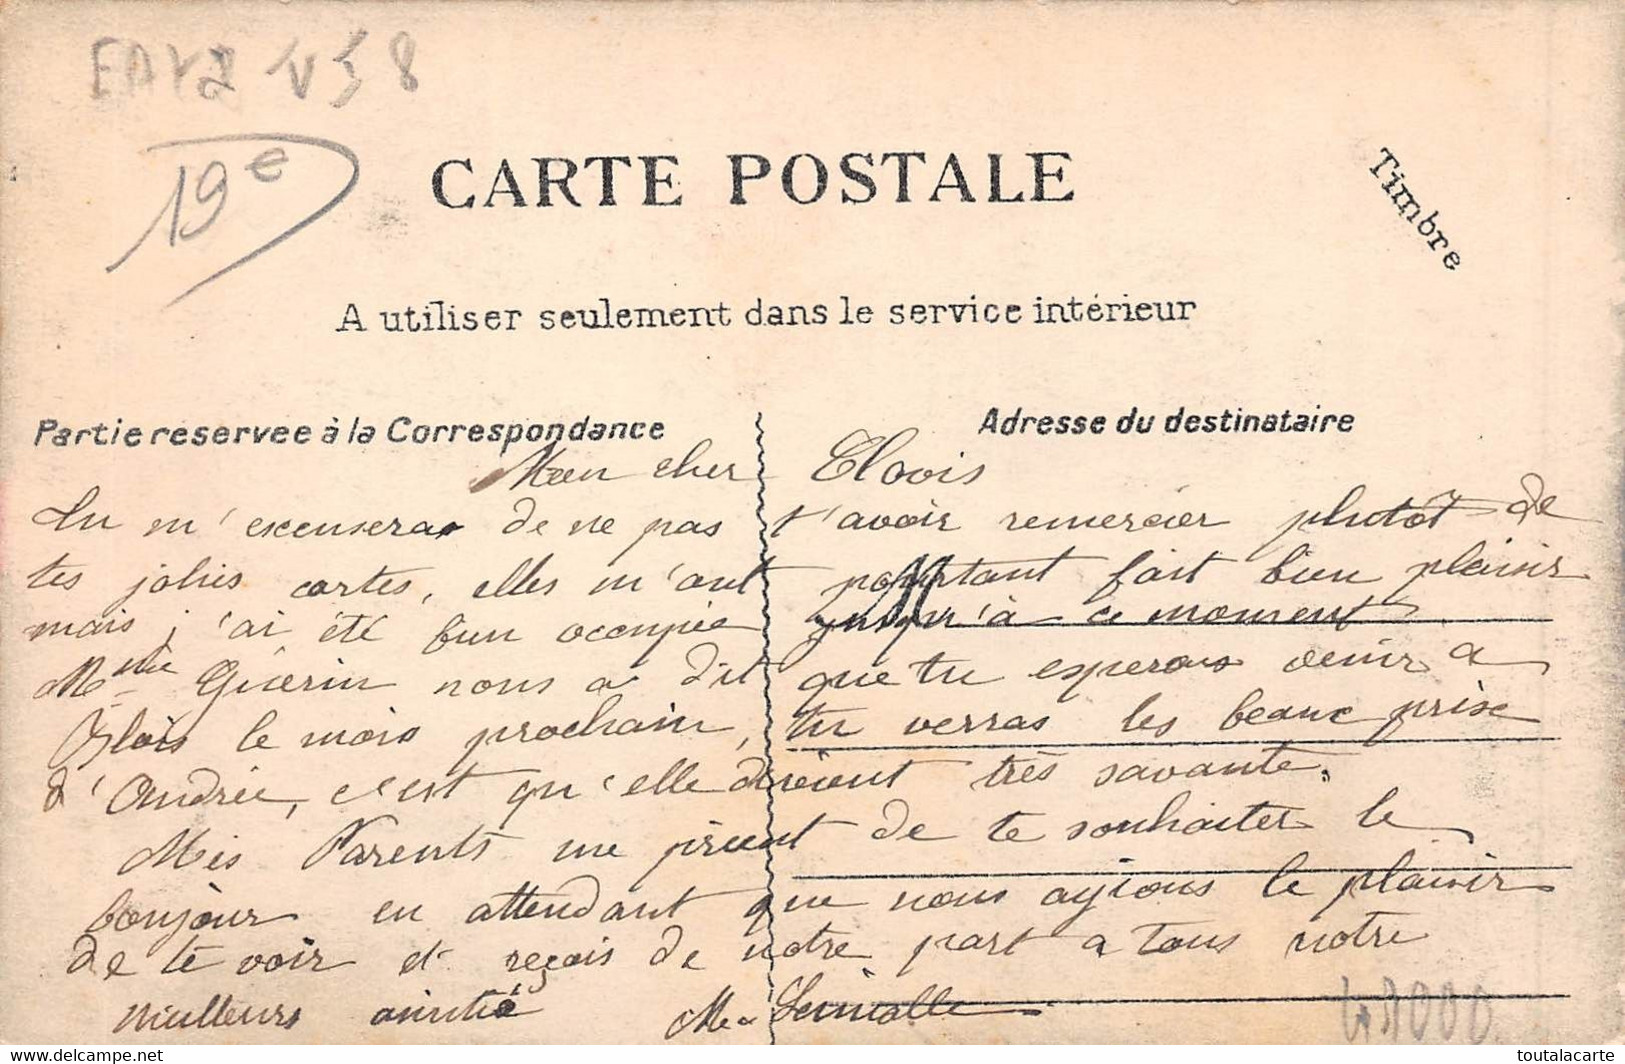 19e
CARTE POSTALE
Timbre
A utiliser seulement dans le service intérieur
Partie reservee à la Correspondance
Adresse du destinataire
Mon cher Clovis
Tu m'excuseras de ne pas t'avoir remercier plutôt de
tes jolies cartes, elles m'ont pourtant fait bien plaisir
mais j'ai été bien occupée jusqu'à ce moment
Mme Guérin nous a dit que tu esperais venir a
Blois le mois prochain, tu verras les beaux prise
d'Andrée, c'est qu'elle devient très savante.
Mes Parents me prient de te souhaiter le
bonjour en attendant que nous ayions le plaisir
de te voir et reçois de notre part a tous notre
meilleurs amitié
48000
toutalacarte